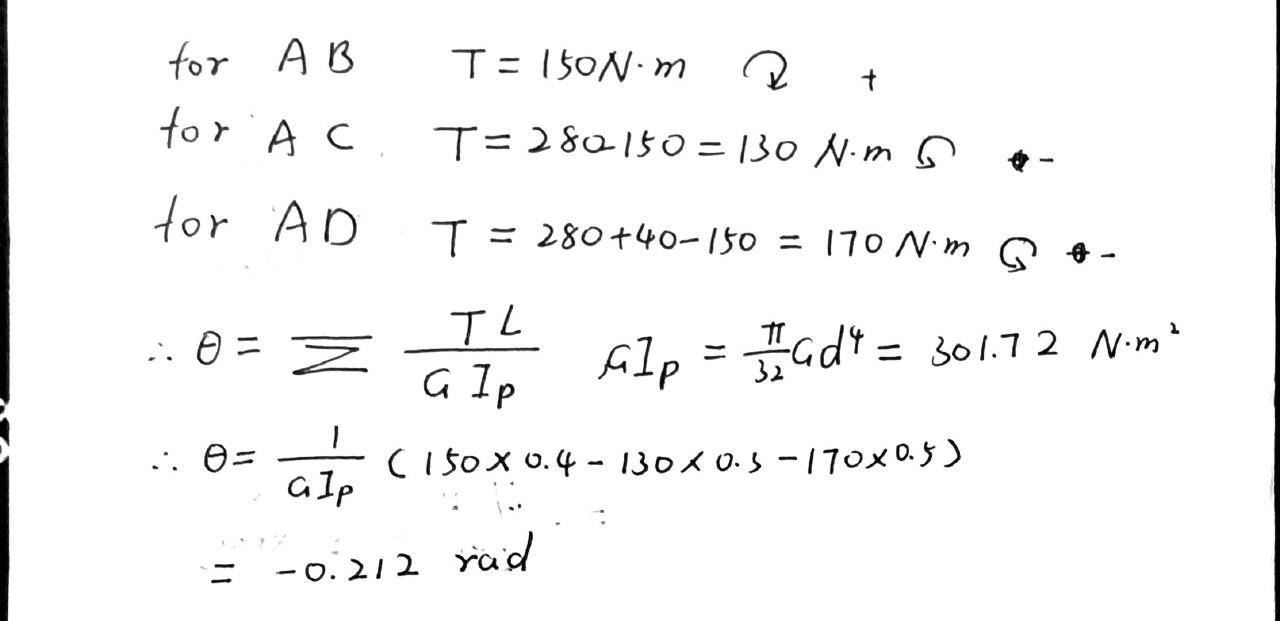 for AB T = 150N·m ↻ +
for AC T = 280-150 = 130 N·m ↺ -
for AD T = 280+40-150 = 170 N·m ↺ -
∴ θ = Σ TL/GIp GIp = π/32 Gd⁴ = 301.72 N·m²
∴ θ = 1/GIp (150×0.4-130×0.3-170×0.5)
= -0.212 rad